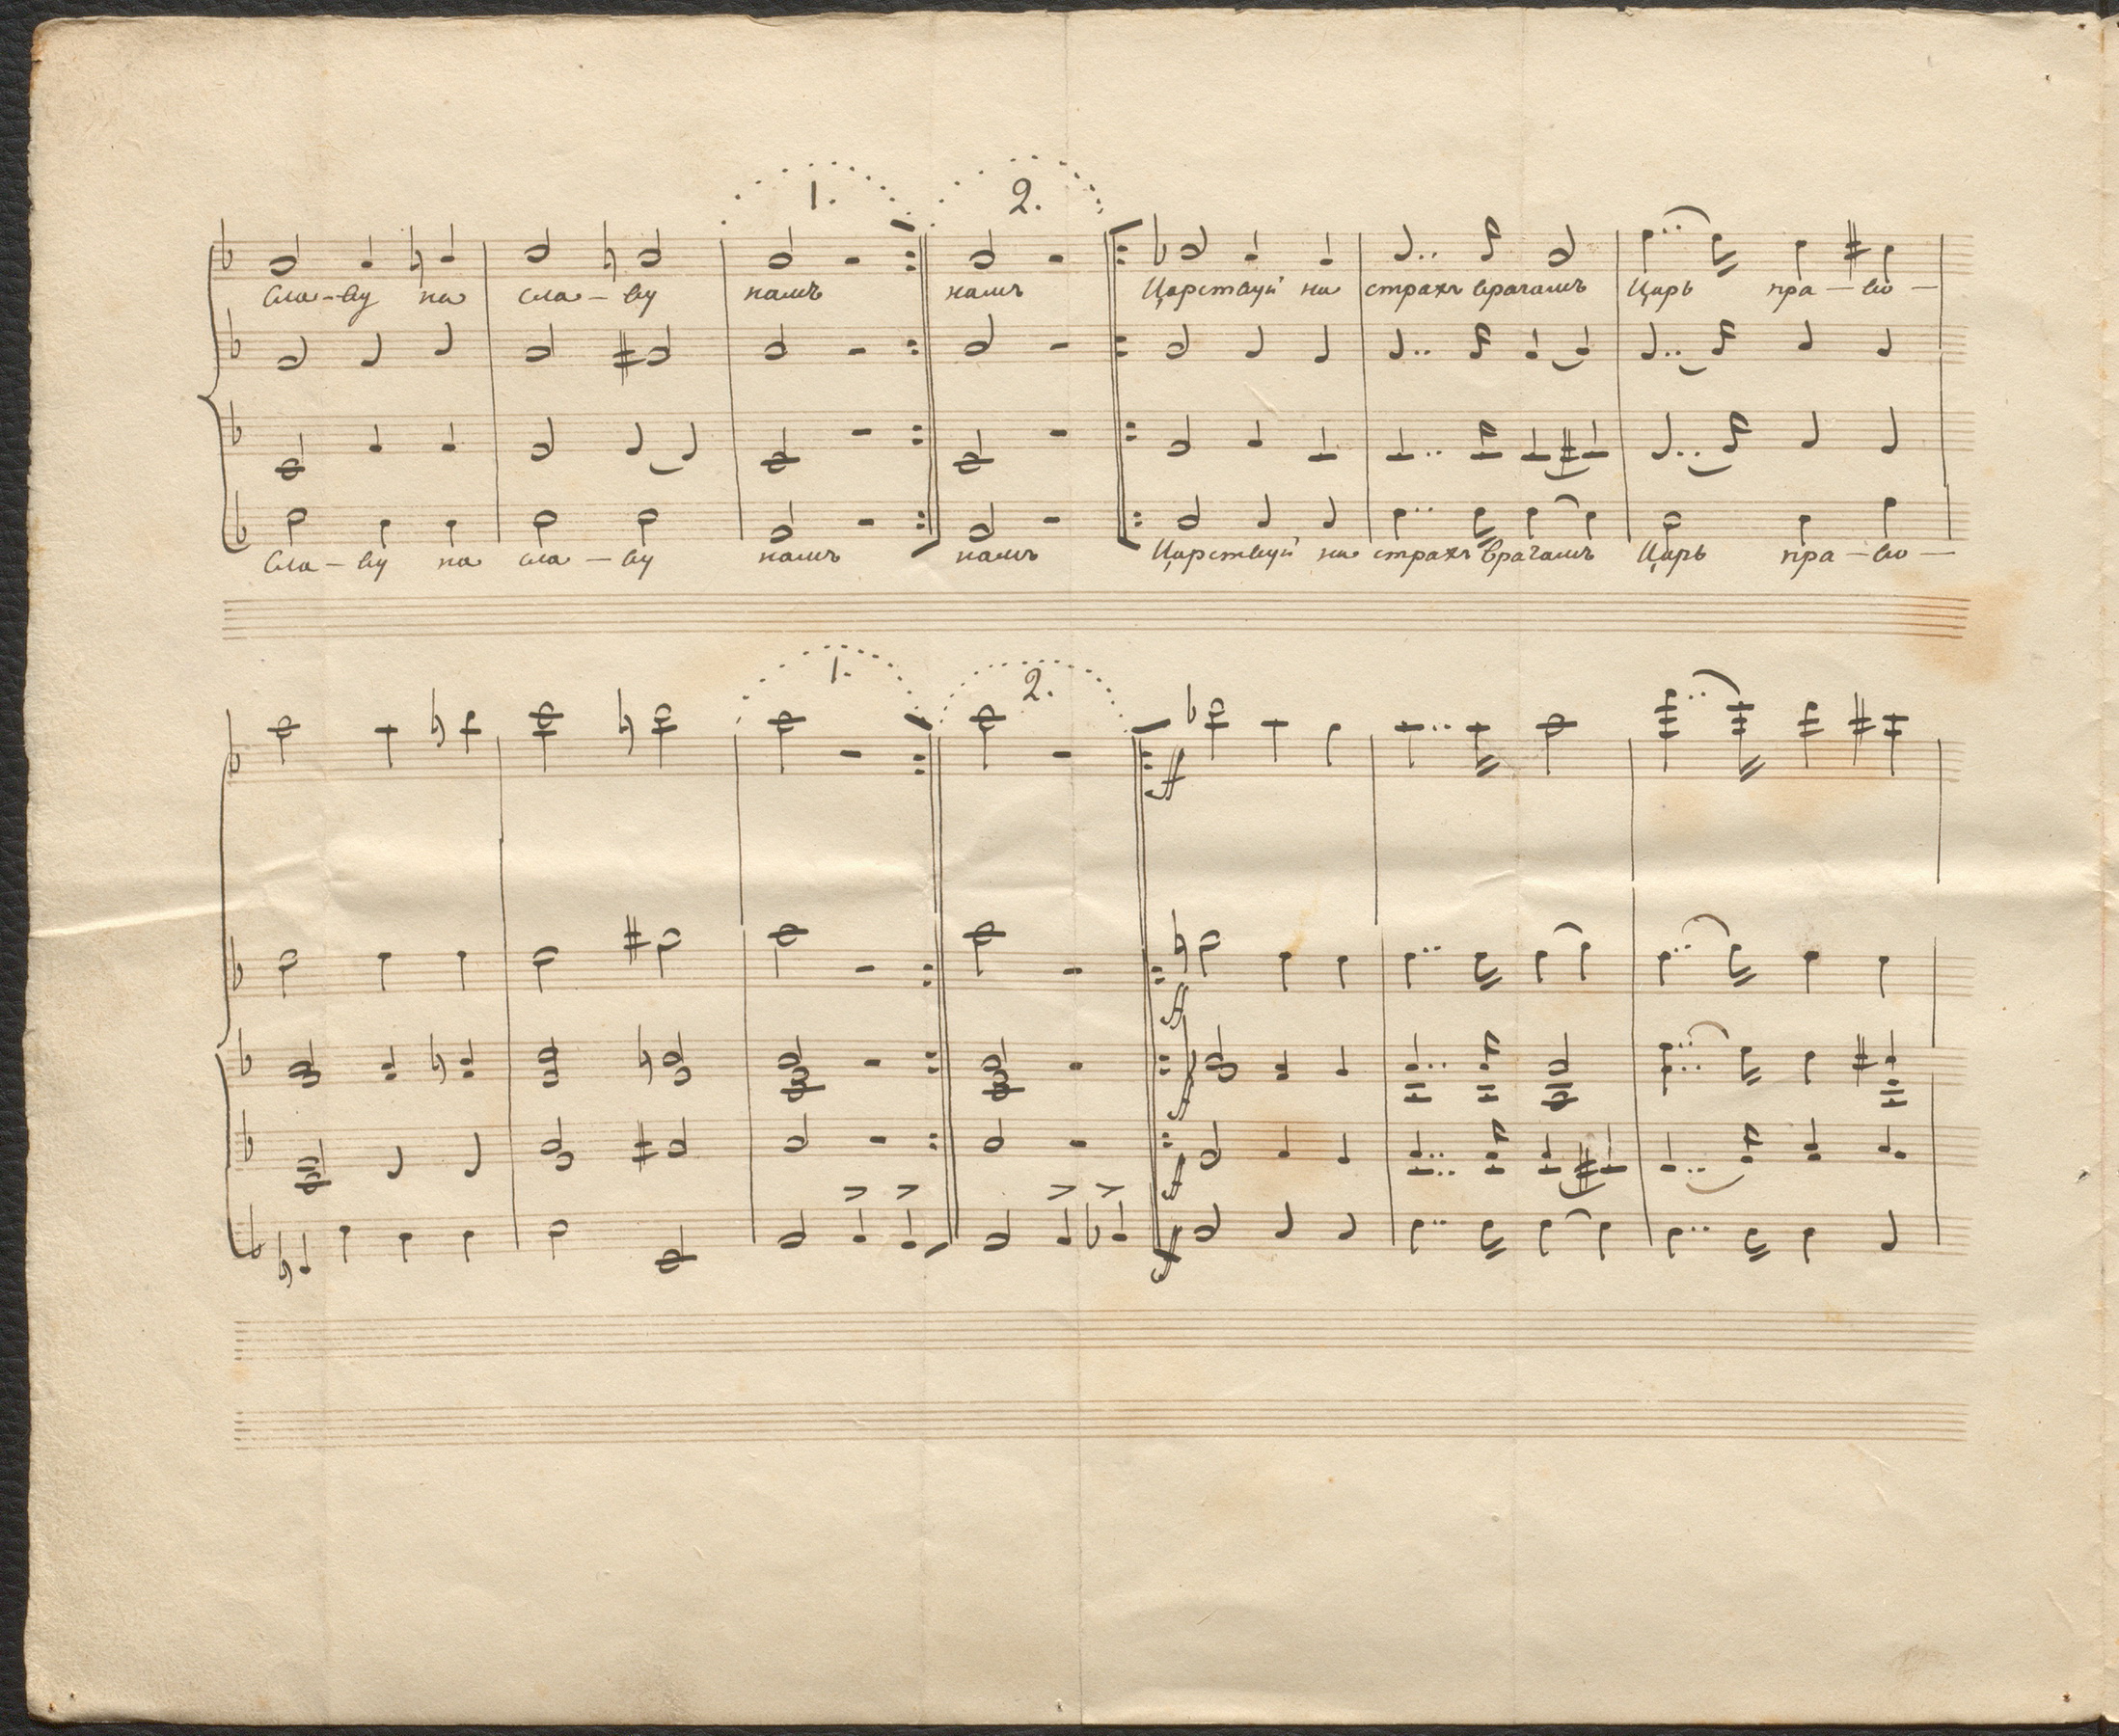 1. 2.
Сла-ву на сла-ву намъ намъ Царствуй на страхъ врагамъ Царь пра-во-
Сла-ву на сла-ву намъ намъ Царствуй на страхъ врагамъ Царь пра-во-
1. 2.
ff
ff
ff
ff
ff